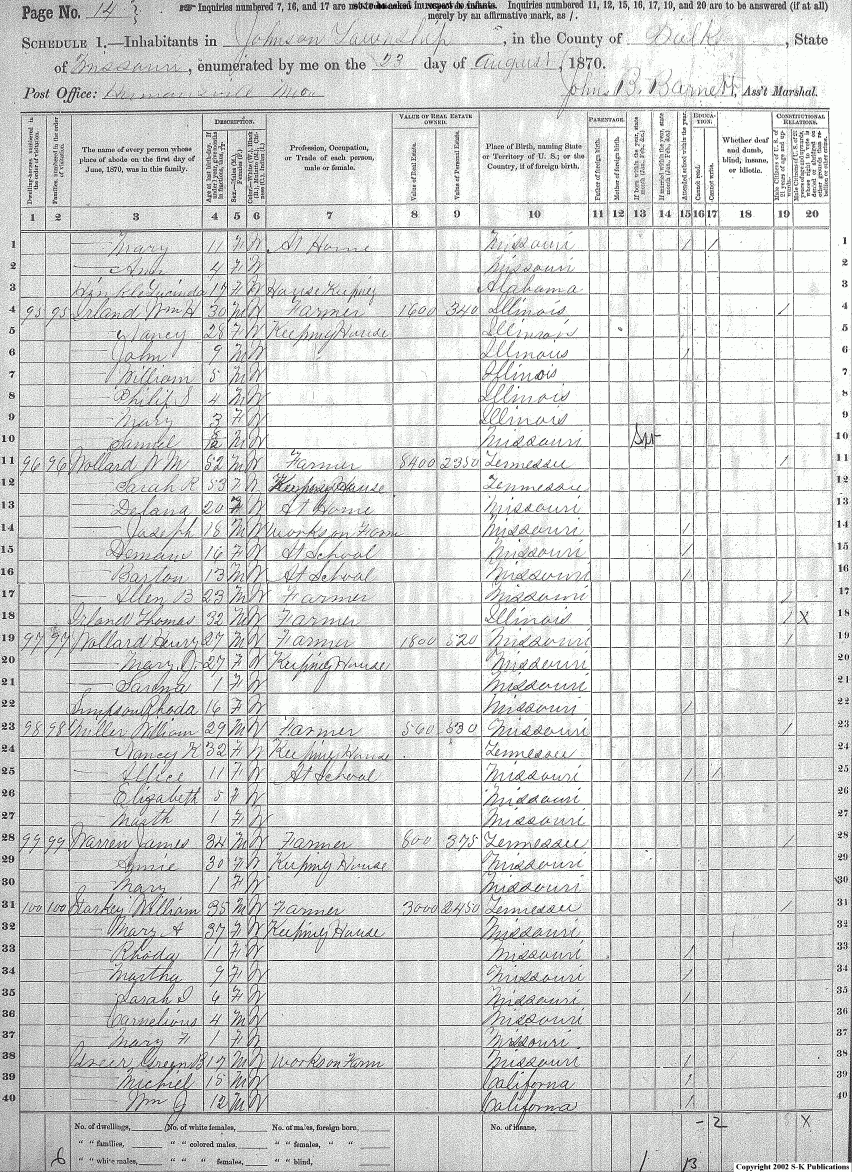 Page No. 14
Inquiries numbered 7, 16, and 17 are not to be asked in respect to infants. Inquiries numbered 11, 12, 15, 16, 17, 19, and 20 are to be answered (if at all)
merely by an affirmative mark, as /.
SCHEDULE 1.—Inhabitants in Johnson Township, in the County of Polk, State
of Missouri, enumerated by me on the 23 day of August, 1870.
Post Office: Humansville Mo John B. Barnett, Ass't Marshal.
DESCRIPTION. VALUE OF REAL ESTATE OWNED. PARENTAGE. EDUCATION. CONSTITUTIONAL RELATIONS.
Dwelling-houses, numbered in the order of visitation. Families, numbered in the order of visitation. The name of every person whose place of abode on the first day of June, 1870, was in this family. Sex.—Males (M.), Females (F.) Profession, Occupation, or Trade of each person, male or female. Value of Real Estate. Value of Personal Estate. Place of Birth, naming State or Territory of U. S.; or the Country, if of foreign birth. Father of foreign birth. Mother of foreign birth. Attended school within the year. Cannot read. Cannot write. Whether deaf and dumb, blind, insane, or idiotic.
1 2 3 4 5 6 7 8 9 10 11 12 13 14 15 16 17 18 19 20
1 — Mary 11 F W At Home Missouri / / 1
2 — Ann 4 F W Missouri 2
3 Hinkle Lucinda 17 F W House Keeping Alabama 3
4 95 95 Irland Wm H 30 M W Farmer 1600 340 Illinois / 4
5 — Nancy 28 F W Keeping House Illinois 5
6 — John 9 M W Illinois / 6
7 — William 5 M W Illinois 7
8 — Philip S 4 M W Illinois 8
9 — Mary 3 F W Illinois 9
10 — Samuel M W Missouri 10
11 96 96 Wollard W M 52 M W Farmer 8400 2350 Tennessee / 11
12 — Sarah K 53 F W Keeping House Tennessee 12
13 — Delana 20 F W At Home Missouri 13
14 — Joseph 18 M W Works on Farm Missouri / 14
15 — 16 F W At School Missouri / 15
16 — Barton 13 M W At School Missouri / 16
17 — Allen B 23 M W Farmer Missouri / 17
18 Irland Thomas 32 M W Farmer Illinois / X 18
19 97 97 Wollard Henry 27 M W Farmer 1800 520 Missouri / 19
20 — Mary J. 27 F W Keeping House Missouri 20
21 — 1 F W Missouri 21
22 Simpson Rhoda 16 F W Missouri / 22
23 98 98 Miller William 29 M W Farmer 560 530 Missouri / 23
24 — Nancy K 32 F W Keeping House Tennessee 24
25 — Allice 11 F W At School Missouri / / 25
26 — Elizabeth 5 F W Missouri 26
27 — Marth 1 F W Missouri 27
28 99 99 Warren James 34 M W Farmer 800 375 Tennessee / 28
29 — Annie 30 F W Keeping House Missouri 29
30 — Mary 1 F W Missouri 30
31 100 100 Starkey William 35 M W Farmer 3000 2450 Tennessee / 31
32 — Mary A 37 F W Keeping House Missouri 32
33 — Rhoda 11 F W Missouri / 33
34 — Martha 9 F W Missouri / 34
35 — Sarah I 6 F W Missouri / 35
36 — Cornelious 4 M W Missouri 36
37 — Mary F 1 F W Missouri 37
38 Green B 17 M W Works on Farm Missouri / 38
39 — Michiel 15 M W California / 39
40 — Wm J 12 M W California / 40
No. of dwellings, No. of white females, No. of males, foreign born, No. of insane, -2 X
" " families, " " colored males, " " females, " "
6 " " white males, " " " females, " " blind, 1 13
Copyright 2002 S-K Publications